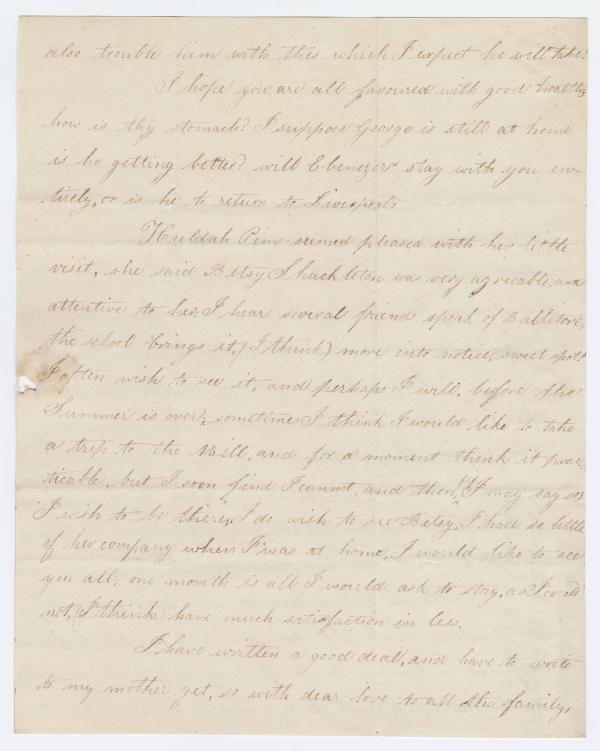 also trouble him with this which I expect he will take.
I hope you are all favoured with good health;
how is thy stomach? I suppose George is still at home
is he getting better? will Ebenezer stay with you en-
tirely, or is he to return to Liverpool?
Huldah Pim seemed pleased with her little
visit, she said Betsy Shackleton was very agreeable, and
attentive to her; I hear several friend speak of Ballitore,
the school brings it, (I think) more into notice, sweet spot!
I often wish to see it, and perhaps I will, before the
Summer is over; sometimes I think I would like to take
a trip to the Mill, and for a moment think it prac-
ticable, but I soon find I cannot, and then, (I may say so)
I wish to be there, I do wish to see Betsy, I had so little
of her company when I was at home, I would like to see
you all, one month is all I would ask to stay, as I could
not, (I think) have much satisfaction in less.
I have written a good deal, and have to write
to my mother yet, so with dear love to all the family,